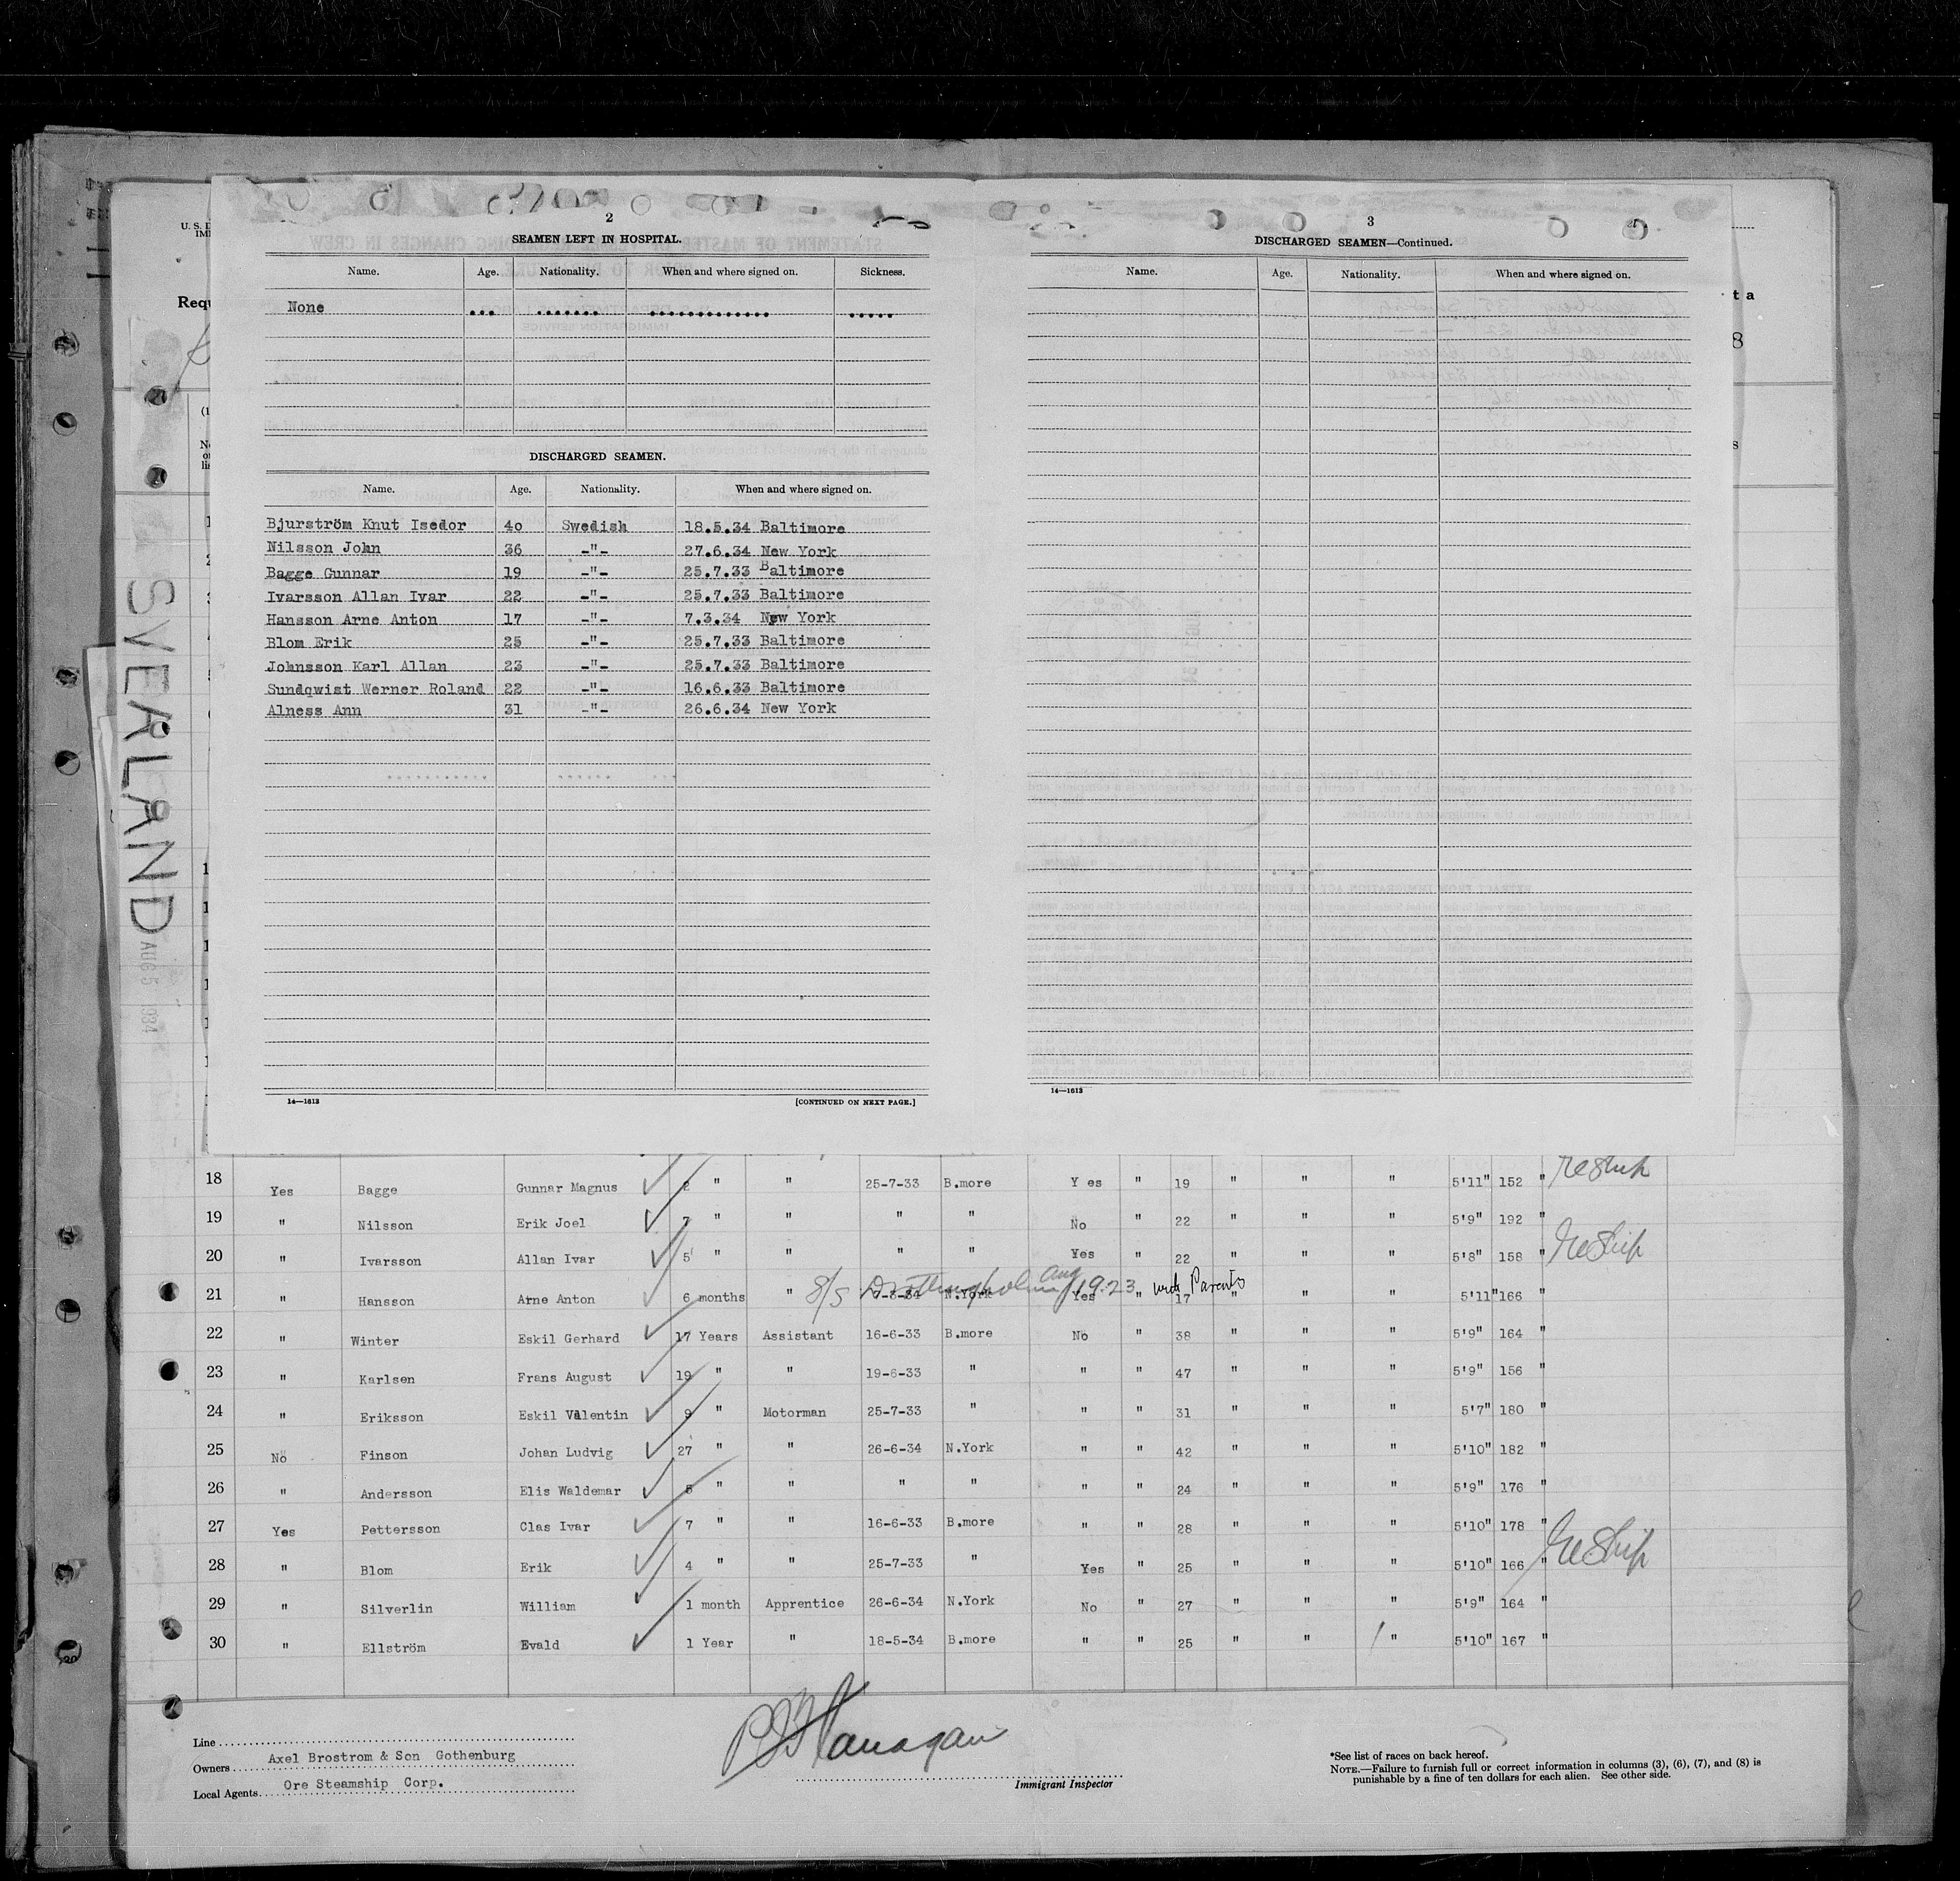 2
SEAMEN LEFT IN HOSPITAL.
Name. Age. Nationality. When and where signed on. Sickness.
None ... ....... ............. .....
DISCHARGED SEAMEN.
Name. Age. Nationality. When and where signed on.
Bjurström Knut Isedor 40 Swedish 18.5.34 Baltimore
Nilsson John 36 -"- 27.6.34 New York
Bagge Gunnar 19 -"- 25.7.33 Baltimore
Ivarsson Allan Ivar 22 -"- 25.7.33 Baltimore
Hansson Arne Anton 17 -"- 7.3.34 New York
Blom Erik 25 -"- 25.7.33 Baltimore
Johnsson Karl Allan 23 -"- 25.7.33 Baltimore
Sundqwist Werner Roland 22 -"- 16.6.33 Baltimore
Alness Ann 31 -"- 26.6.34 New York
14—1613 [CONTINUED ON NEXT PAGE.]
3
DISCHARGED SEAMEN—Continued.
Name. Age. Nationality. When and where signed on.
14—1613
U. S. D
Requ
t a
8
SVERLAND
AUG 5 1934
18 Yes Bagge Gunnar Magnus 2 " " 25-7-33 B.more Yes " 19 " " " 5'11" 152 " reship
19 " Nilsson Erik Joel 7 " " " " No " 22 " " " 5'9" 192 "
20 " Ivarsson Allan Ivar 5 " " " " Yes " 22 " " " 5'8" 158 " reship
S/S Drottningholm Aug 1923 with Parents
21 " Hansson Arne Anton 6 months " 7-3-34 N.York Yes " 17 " " " 5'11" 166 "
22 " Winter Eskil Gerhard 17 Years Assistant 16-6-33 B.more No " 38 " " " 5'9" 164 "
23 " Karlsen Frans August 19 " " 19-6-33 " " " 47 " " " 5'9" 156 "
24 " Eriksson Eskil Valentin 9 " Motorman 25-7-33 " " " 31 " " " 5'7" 180 "
25 No Finson Johan Ludvig 27 " " 26-6-34 N.York " " 42 " " " 5'10" 182 "
26 " Andersson Elis Waldemar 5 " " " " " " 24 " " " 5'9" 176 "
27 Yes Pettersson Clas Ivar 7 " " 16-6-33 B.more " " 28 " " " 5'10" 178 "
28 " Blom Erik 4 " " 25-7-33 " Yes " 25 " " " 5'10" 166 " reship
29 " Silverlin William 1 month Apprentice 26-6-34 N.York No " 27 " " " 5'9" 164 "
30 " Ellström Evald 1 Year " 18-5-34 B.more " " 25 " " " 5'10" 167 "
Line
Owners Axel Brostrom & Son Gothenburg
Local Agents Ore Steamship Corp.
P J Flanagan
Immigrant Inspector
*See list of races on back hereof.
NOTE.—Failure to furnish full or correct information in columns (3), (6), (7), and (8) is
punishable by a fine of ten dollars for each alien. See other side.